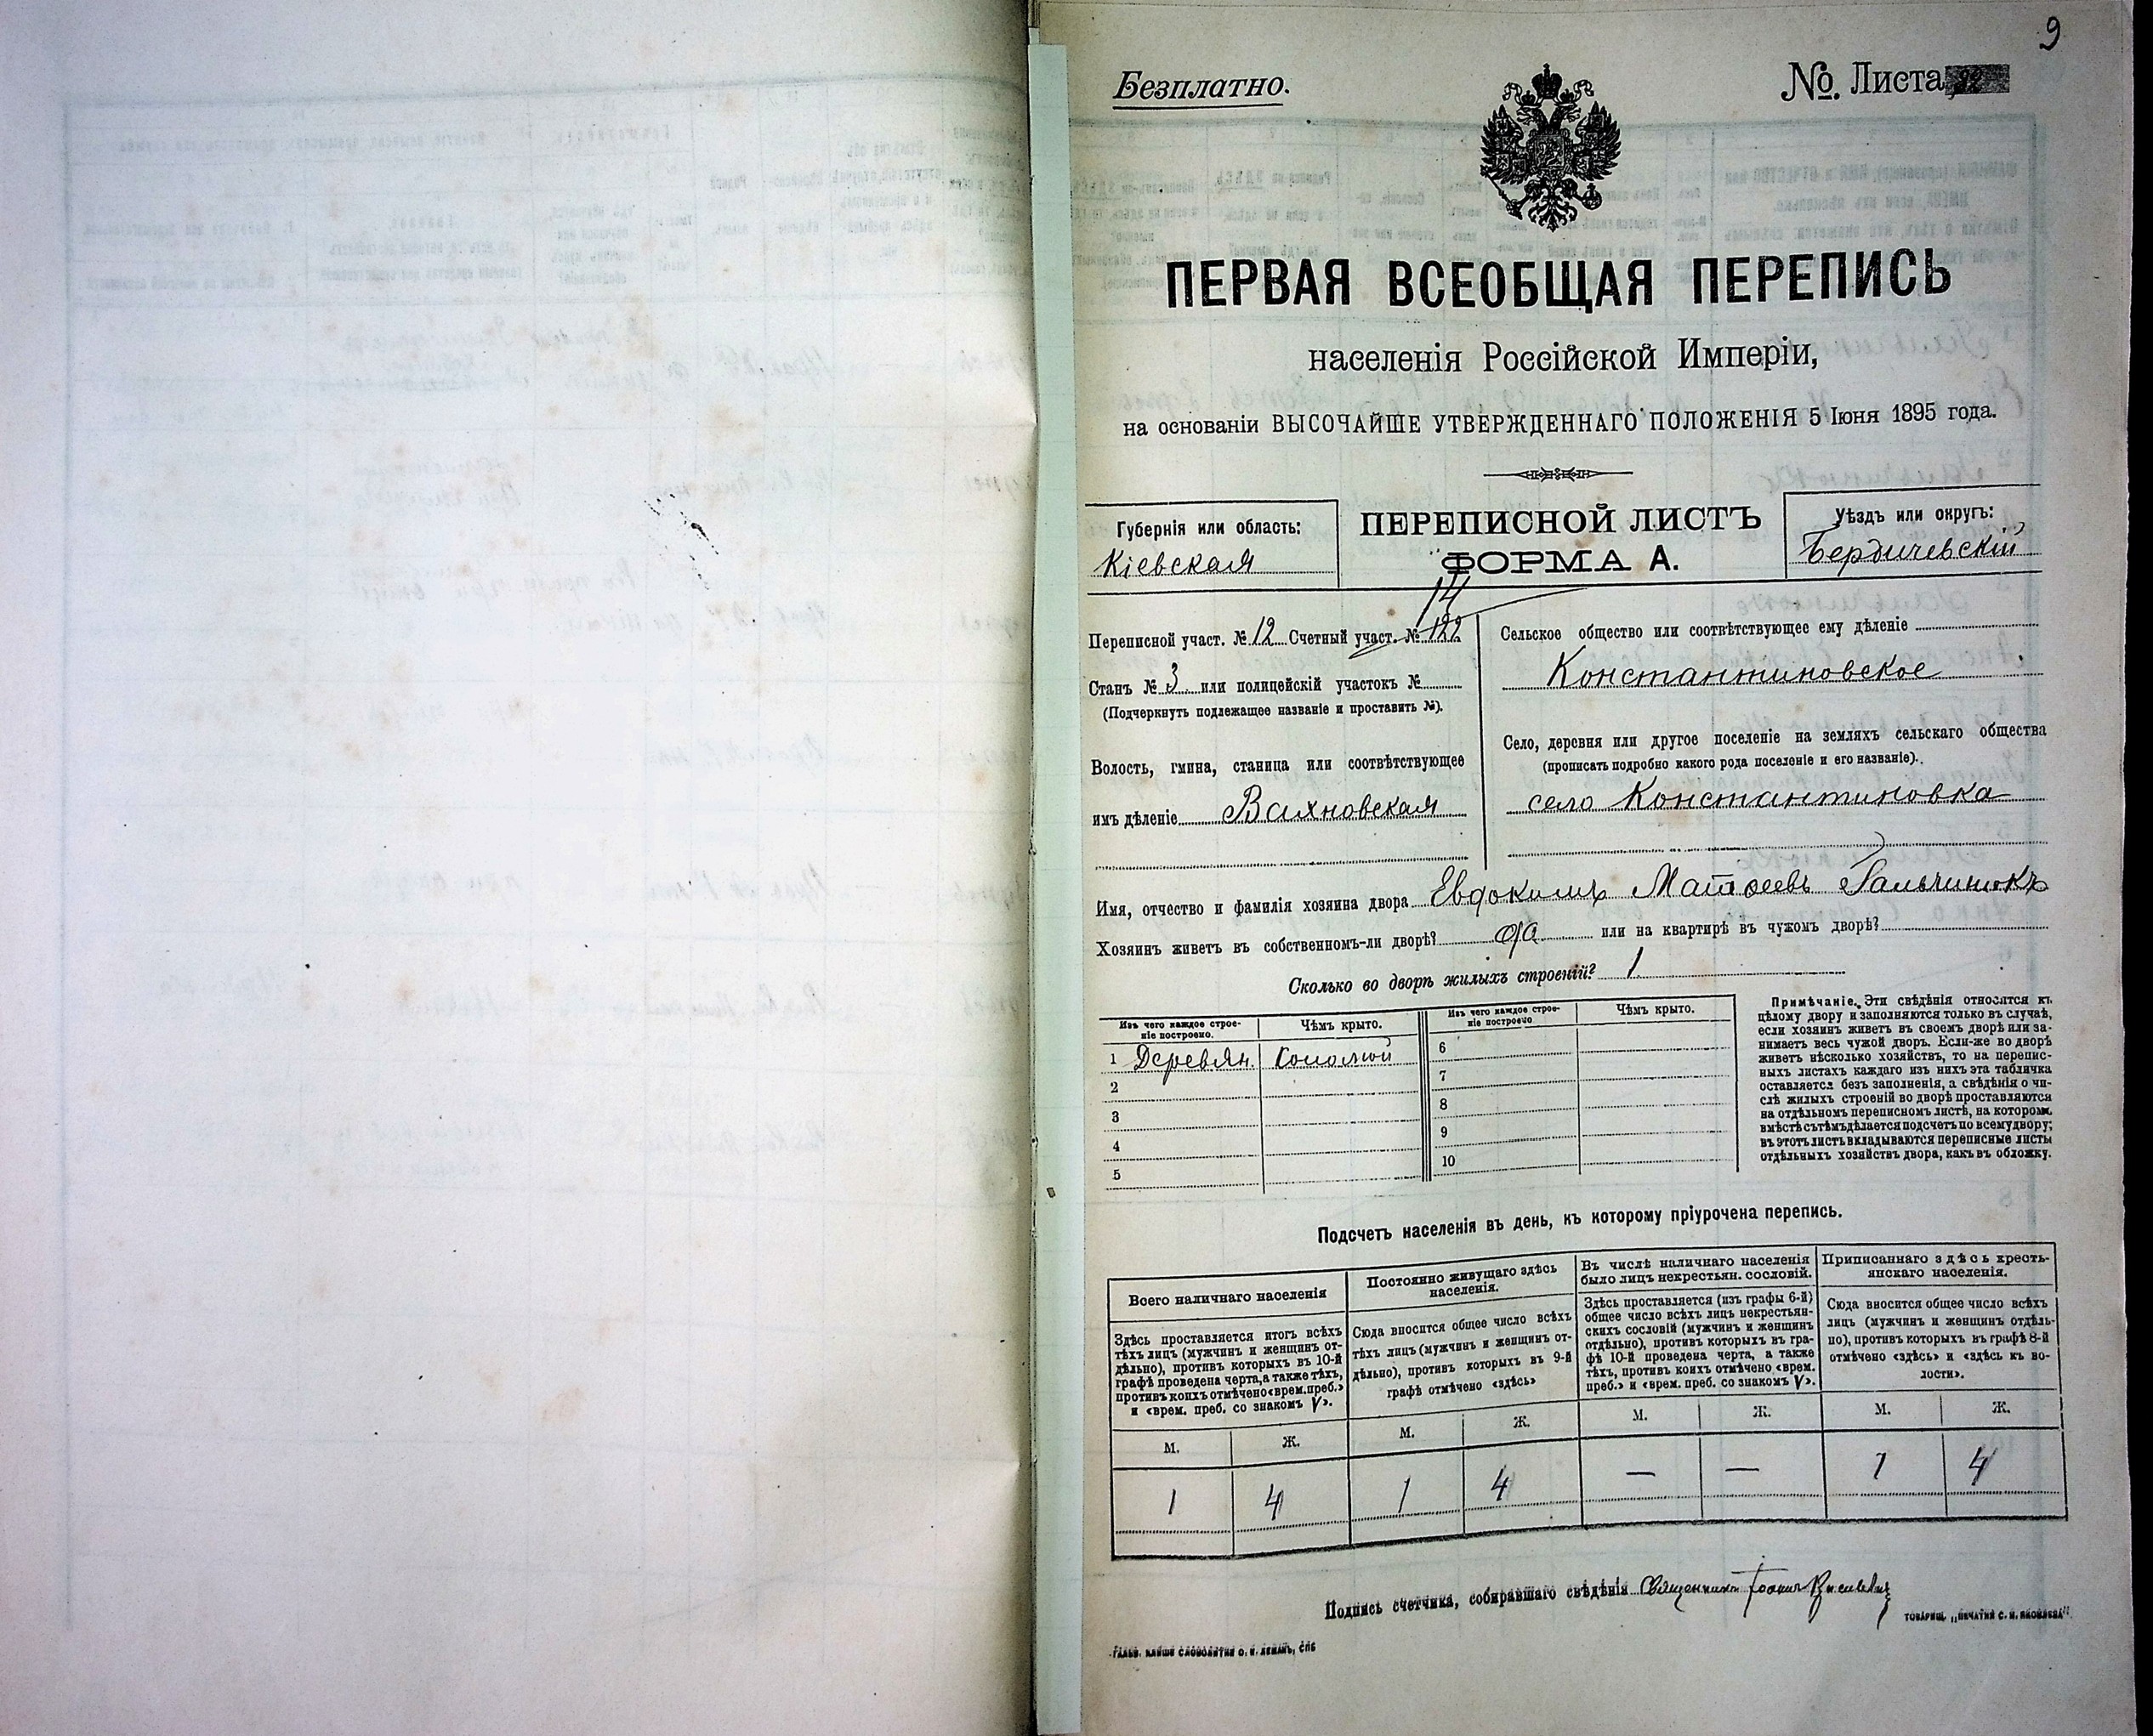 9
Безплатно.
№ Листа
ПЕРВАЯ ВСЕОБЩАЯ ПЕРЕПИСЬ
населенія Россійской Имперіи,
на основаніи ВЫСОЧАЙШЕ УТВЕРЖДЕННАГО ПОЛОЖЕНІЯ 5 Іюня 1895 года.
Губернія или область:
Кіевская
ПЕРЕПИСНОЙ ЛИСТЪ
ФОРМА А.
Уѣздъ или округъ:
Бердичевскій
14
Переписной участ. № 12 Счетный участ. № 122
Станъ № 3 или полицейскій участокъ №
(Подчеркнуть подлежащее названіе и проставить №).
Волость, гмина, станица или соотвѣтствующее
имъ дѣленіе Вахновская
Сельское общество или соотвѣтствующее ему дѣленіе
Константиновское
Село, деревня или другое поселеніе на земляхъ сельскаго общества
(прописать подробно какого рода поселеніе и его названіе).
село Константиновка
Имя, отчество и фамилія хозяина двора Евдокимъ Матѳеевъ Гальчинюкъ
Хозяинъ живетъ въ собственномъ-ли дворѣ? да или на квартирѣ въ чужомъ дворѣ?
Сколько во дворѣ жилыхъ строеній? 1
Изъ чего каждое строе-
ніе построено.
Чѣмъ крыто.
Изъ чего каждое строе-
ніе построено
Чѣмъ крыто.
1 Деревян. Соломой 6
2 7
3 8
4 9
5 10
Примѣчаніе. Эти свѣдѣнія относятся къ
цѣлому двору и заполняются только въ случаѣ,
если хозяинъ живетъ въ своемъ дворѣ или за-
нимаетъ весь чужой дворъ. Если-же во дворѣ
живетъ нѣсколько хозяйствъ, то на перепис-
ныхъ листахъ каждаго изъ нихъ эта табличка
оставляется безъ заполненія, а свѣдѣнія о чи-
слѣ жилыхъ строеній во дворѣ проставляются
на отдѣльномъ переписномъ листѣ, на которомъ
вмѣстѣ съ тѣмъ дѣлается подсчетъ по всему двору;
въ этотъ листъ вкладываются переписные листы
отдѣльныхъ хозяйствъ двора, какъ въ обложку.
Подсчетъ населенія въ день, къ которому пріурочена перепись.
Всего наличнаго населенія
Здѣсь проставляется итогъ всѣхъ
тѣхъ лицъ (мужчинъ и женщинъ от-
дѣльно), противъ которыхъ въ 10-й
графѣ проведена черта, а также тѣхъ,
противъ коихъ отмѣчено «врем. преб.»
и «врем. преб. со знакомъ V».
Постоянно живущаго здѣсь
населенія.
Сюда вносится общее число всѣхъ
тѣхъ лицъ (мужчинъ и женщинъ от-
дѣльно), противъ которыхъ въ 9-й
графѣ отмѣчено «здѣсь»
Въ числѣ наличнаго населенія
было лицъ некрестьян. сословій.
Здѣсь проставляется (изъ графы 6-й)
общее число всѣхъ лицъ некрестьян-
скихъ сословій (мужчинъ и женщинъ
отдѣльно), противъ которыхъ въ гра-
фѣ 10-й проведена черта, а также
тѣхъ, противъ коихъ отмѣчено «врем.
преб.» и «врем. преб. со знакомъ V».
Приписаннаго здѣсь кресть-
янскаго населенія.
Сюда вносится общее число всѣхъ
лицъ (мужчинъ и женщинъ отдѣль-
но), противъ которыхъ въ графѣ 8-й
отмѣчено «здѣсь» и «здѣсь къ во-
лости».
М. Ж. М. Ж. М. Ж. М. Ж.
1 4 1 4 — — 1 4
Подпись счетчика, собиравшаго свѣдѣнія Священникъ Іоаннъ
ТОВАРИЩ. „ПЕЧАТНЯ С. П. ЯКОВЛЕВА“.
ГАЛЬВ. КЛИШЕ СЛОВОЛИТНИ О. И. ЛЕМАНЪ, СПБ